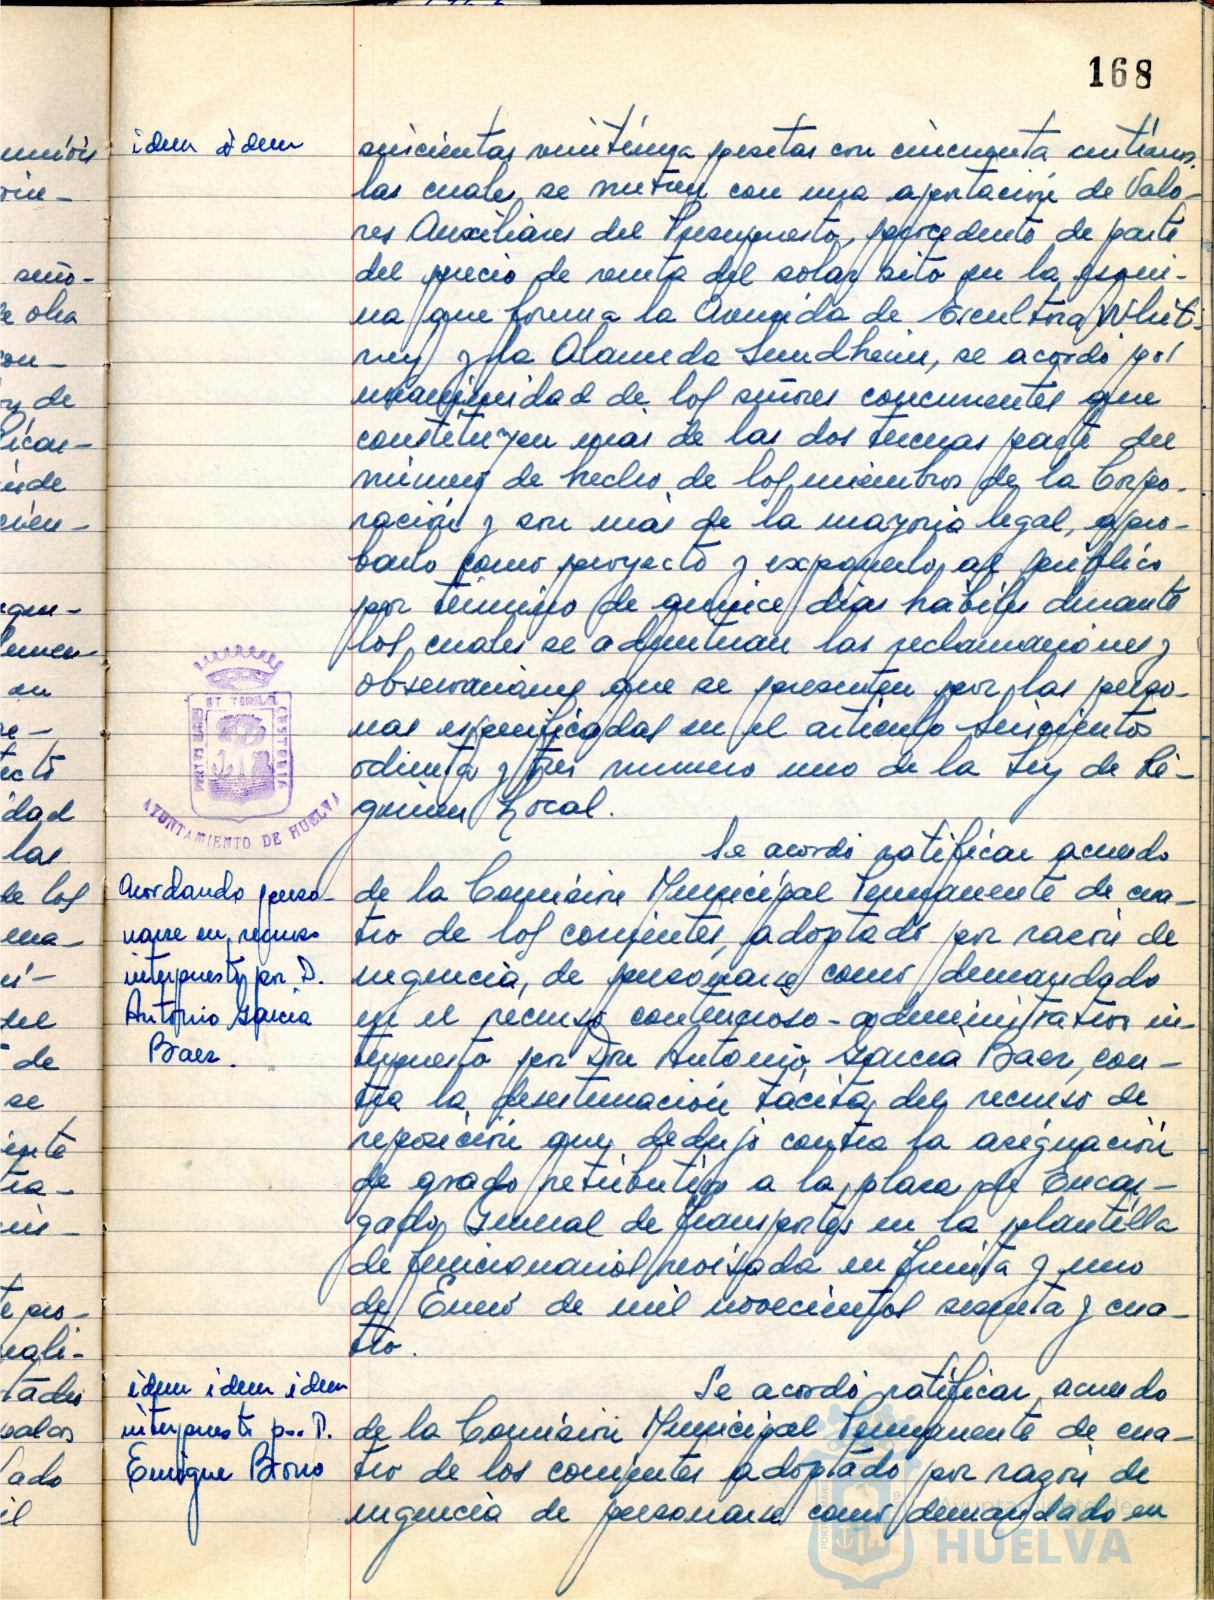 168
idem idem
seiscientas veintiuna pesetas con cincuenta céntimos
las cuales se nutren con una aportación de Valo-
res Auxiliares del Presupuesto, procedente de parte
del precio de venta del solar sito en la esqui-
na que forma la Avenida de Escultora Whit-
ney y la Alameda Sundheim, se acordó por
unanimidad de los señores concurrentes que
constituyen más de las dos terceras parte del
número de hecho de los miembros de la Corpo-
ración y son más de la mayoria legal, apro-
barlo como proyecto y exponerlo al público
por término de quince dias hábiles durante
los cuales se admitiran las reclamaciones y
observaciones que se presenten por las perso-
nas especificadas en el articulo seiscientos
ochenta y tres numero uno de la Ley de Ré-
gimen Local.
PORTUS MARIS ET TERRAE CUSTODIA
AYUNTAMIENTO DE HUELVA
Se acordó ratificar acuerdo
Acordando perso-
narse en recurso
interpuesto por D.
Antonio Garcia
Baez.
de la Comisión Municipal Permanente de cua-
tro de los corrientes, adoptado por razón de
urgencia, de personarse como demandado
en el recurso contencioso-administrativo in-
terpuesto por Don Antonio Garcia Baez, con-
tra la desestimación tácita del recurso de
reposición que dedujo contra la asignación
de grado retributivo a la plaza de Encar-
gado General de Transportes en la plantilla
de funcionarios revisada en treinta y uno
de Enero de mil novecientos sesenta y cua-
tro.
idem idem idem
interpuesto por D.
Enrique Bono
Se acordó ratificar acuerdo
de la Comisión Municipal Permanente de cua-
tro de los corrientes adoptado por razón de
urgencia de personarse como demandado en
Ayuntamiento de
HUELVA